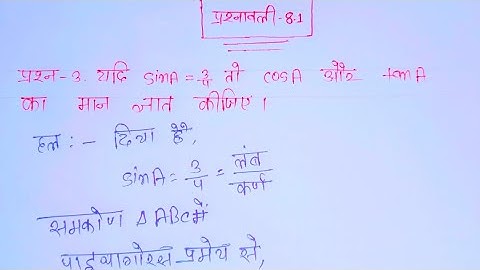 प्रश्नावली-8.1
प्रश्न-3. यदि sinA = 3/4 तो cosA और tanA
का मान ज्ञात कीजिए।
हल:- दिया है,
sinA = 3/4 = लंब/कर्ण
समकोण Δ ABC में
पाइथागोरस प्रमेय से,